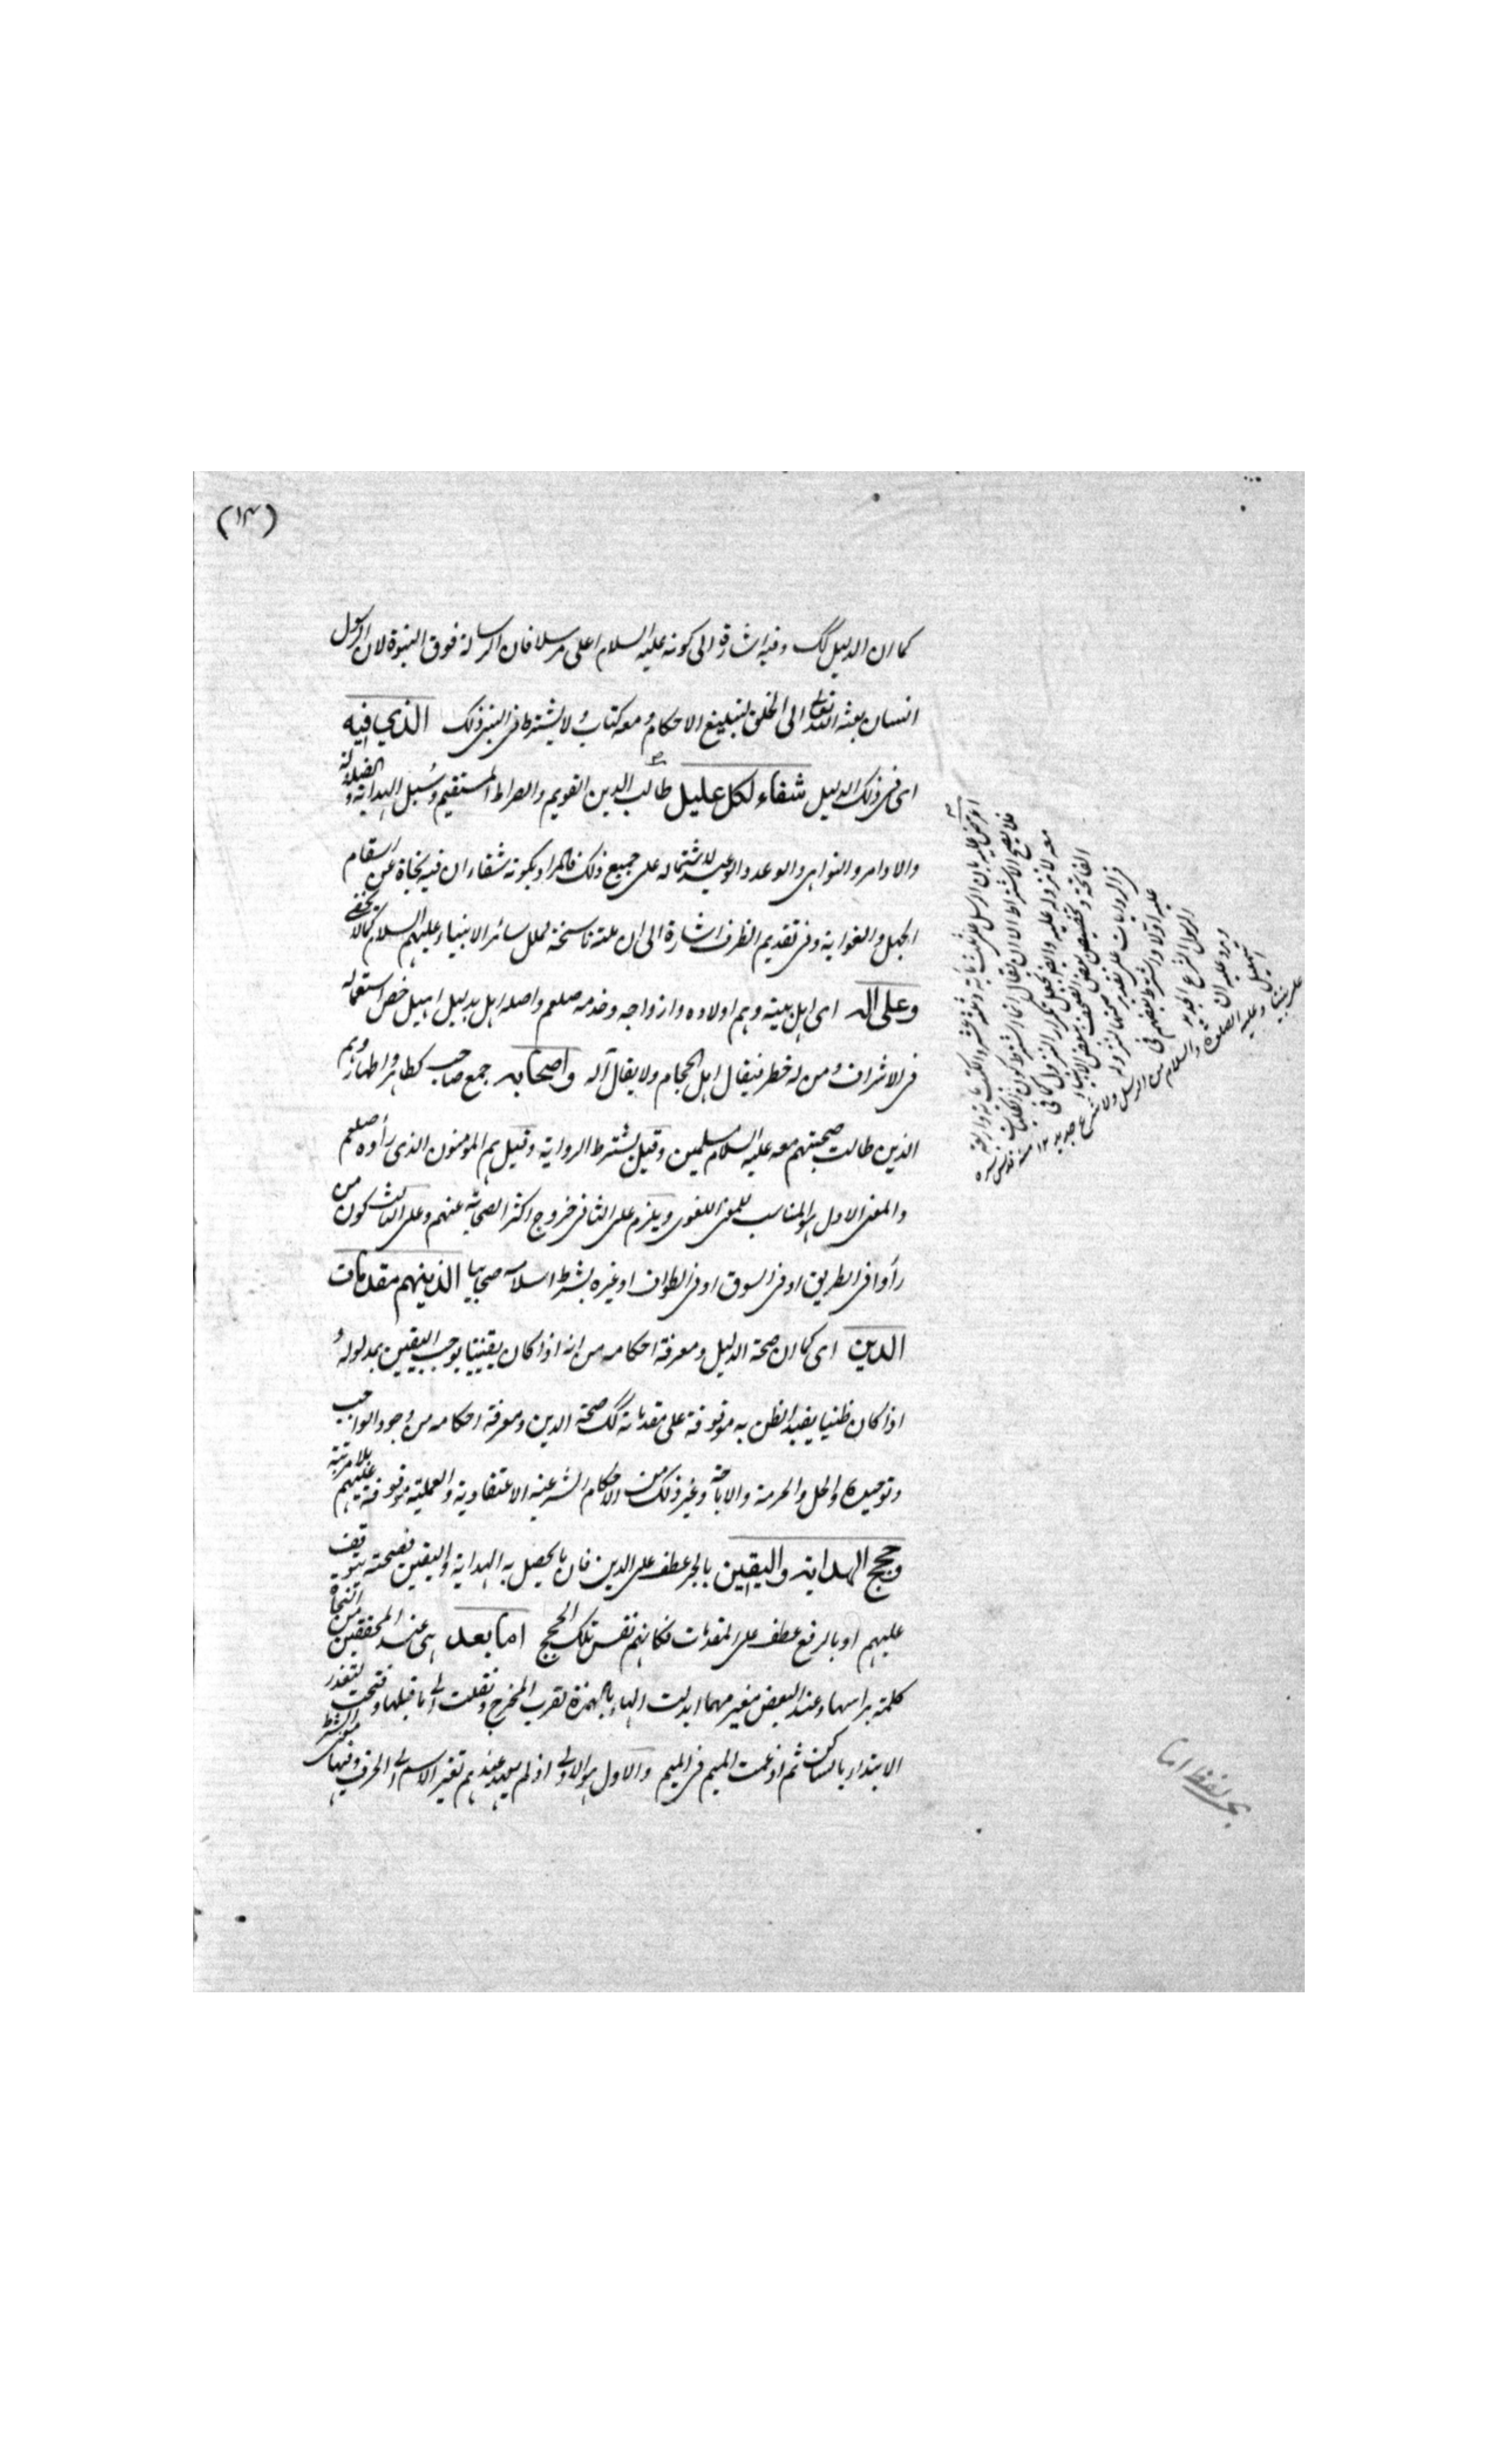 (١٣)
كما ان الدليل كك وفيه اشارة الى كونه عليه السلام اعلى مرسلا فان الرسالة فوق النبوة لان الرسول
انسان بعثه الله تعالى الى الخلق لتبليغ الاحكام ومعه كتاب ولا يشترط فى النبى ذلك الذي فيه
اى فى ذلك الدليل شفاء لكل عليل طالب الدين القويم والصراط المستقيم وسبل الهداية والضلالة
والاوامر والنواهى والوعد والوعيد لاشتماله على جميع ذلك فالمراد بكونه شفاء ان فيه نجاة عن اسقام
الجهل والغواية وفى تقديم الظرف اشارة الى ان ملته ناسخة لملل سائر الانبياء عليهم السلام كما لا يخفى
وعلى اله اى اهل بيته وهم اولاده وازواجه وخدمه صلعم واصله اهل بدليل اهيل خص استعماله
فى الاشراف ومن له خطر فيقال اهل الحجام ولا يقال آله واصحابه جمع صاحب كطاهر واطهار وهم
الذين طالت صحبتهم معه عليه السلام مسلمين وقيل بشرط الرواية وقيل هم المؤمنون الذى رأوه صلعم
والمعنى الاول هو المناسب للمعنى اللغوى ويلزم على الثانى خروج اكثر الصحابة عنهم وعلى الثالث كون من
رأوا فى الطريق او فى السوق او فى الطواف او غيره بشرط اسلامه صحابيا الذينهم مقدمات
الدين اى كما ان صحة الدليل ومعرفة احكامه من انه اذا كان يقينيا يوجب اليقين بمدلوله و
اذا كان ظنيا يفيد الظن به موقوفة على مقدماته كك صحة الدين ومعرفة احكامه من وجود الواجب
وتوحيده والحل والحرمة والاباحة وغير ذلك من الاحكام الشرعية الاعتقادية والعملية موقوفة عليهم بلا مرتبة
وحجج الهداية واليقين بالجر عطف على الدين فان ما يحصل به الهداية واليقين فصحته يتوقف
عليهم او بالرفع عطف على المقدمات فكانهم نفس تلك الحجج اما بعد هى عند المحققين من النحاة
كلمة براسها وعند البعض مغير مهما ابدلت الهاء بالهمزة لقرب المخرج ونقلت الى ما قبلها وفتحت لتعذر
الابتداء بالساكن ثم ادغمت الميم فى الميم والاول هو الاولى اذ لم يعهد عندهم تغير الاسم الى الحرف وفيها معنى الشرط
فلا يصح الاشتراط الا ان يقال
عليه اولا
ورود عليه ان
وعليه الصلوة والسلام من الرسل ولا شرع جديد ١٢ منه قدس سره
لفظ اما